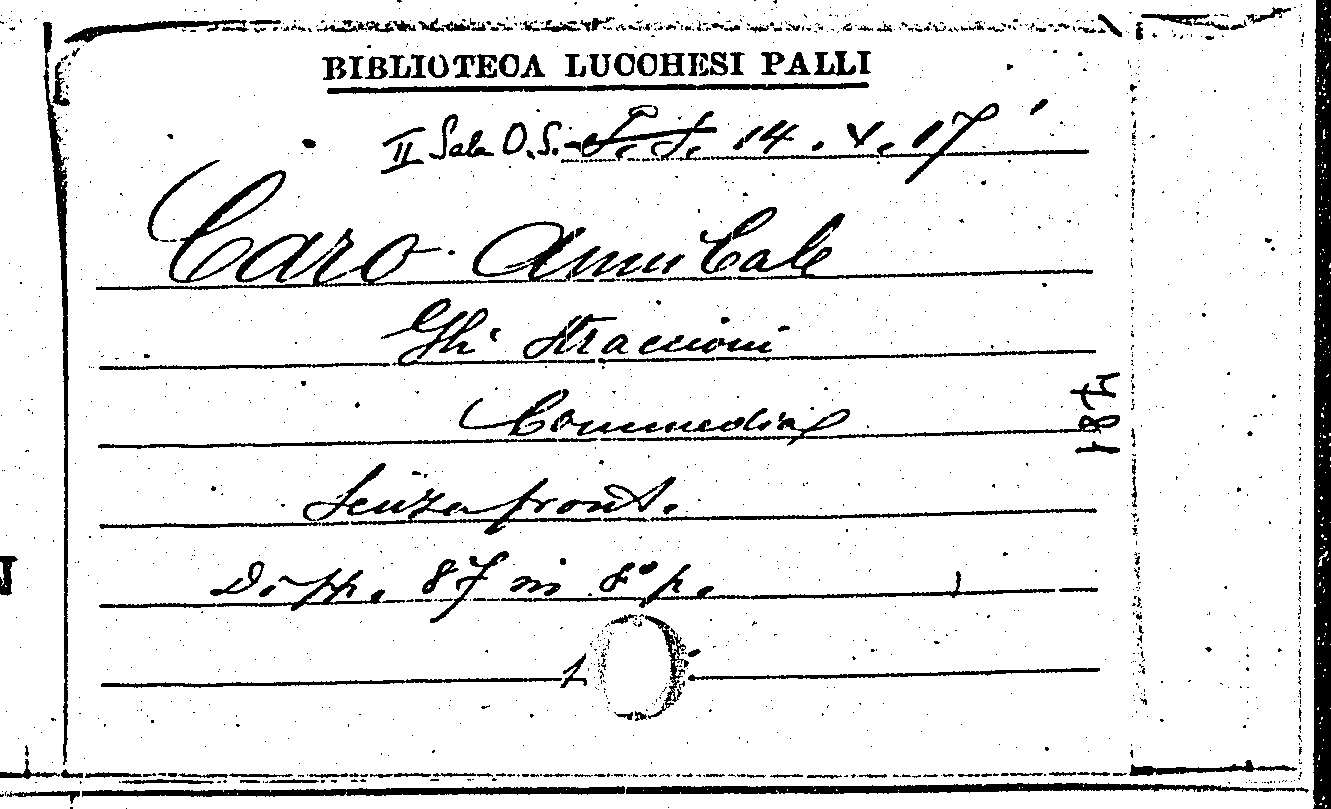 BIBLIOTECA LUCCHESI PALLI
II Sala O.S. 14. 4. 17
Caro Annibale
Gli Straccioni
Commedia
Senza front.
Di pp. 87 in 8° p.
184